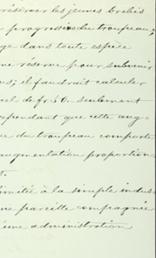 réserver les jeunes brebis
progression du troupeau,
ge dans toute espèce
ne réserve pour subvenir
us; il faudrait calculer
el de fr: 50. seulement
ependant que cette aug-
e du troupeau comporte
augmentation proportion
t.
imitée à la simple indus
ne pareille compagnie
d'une administration